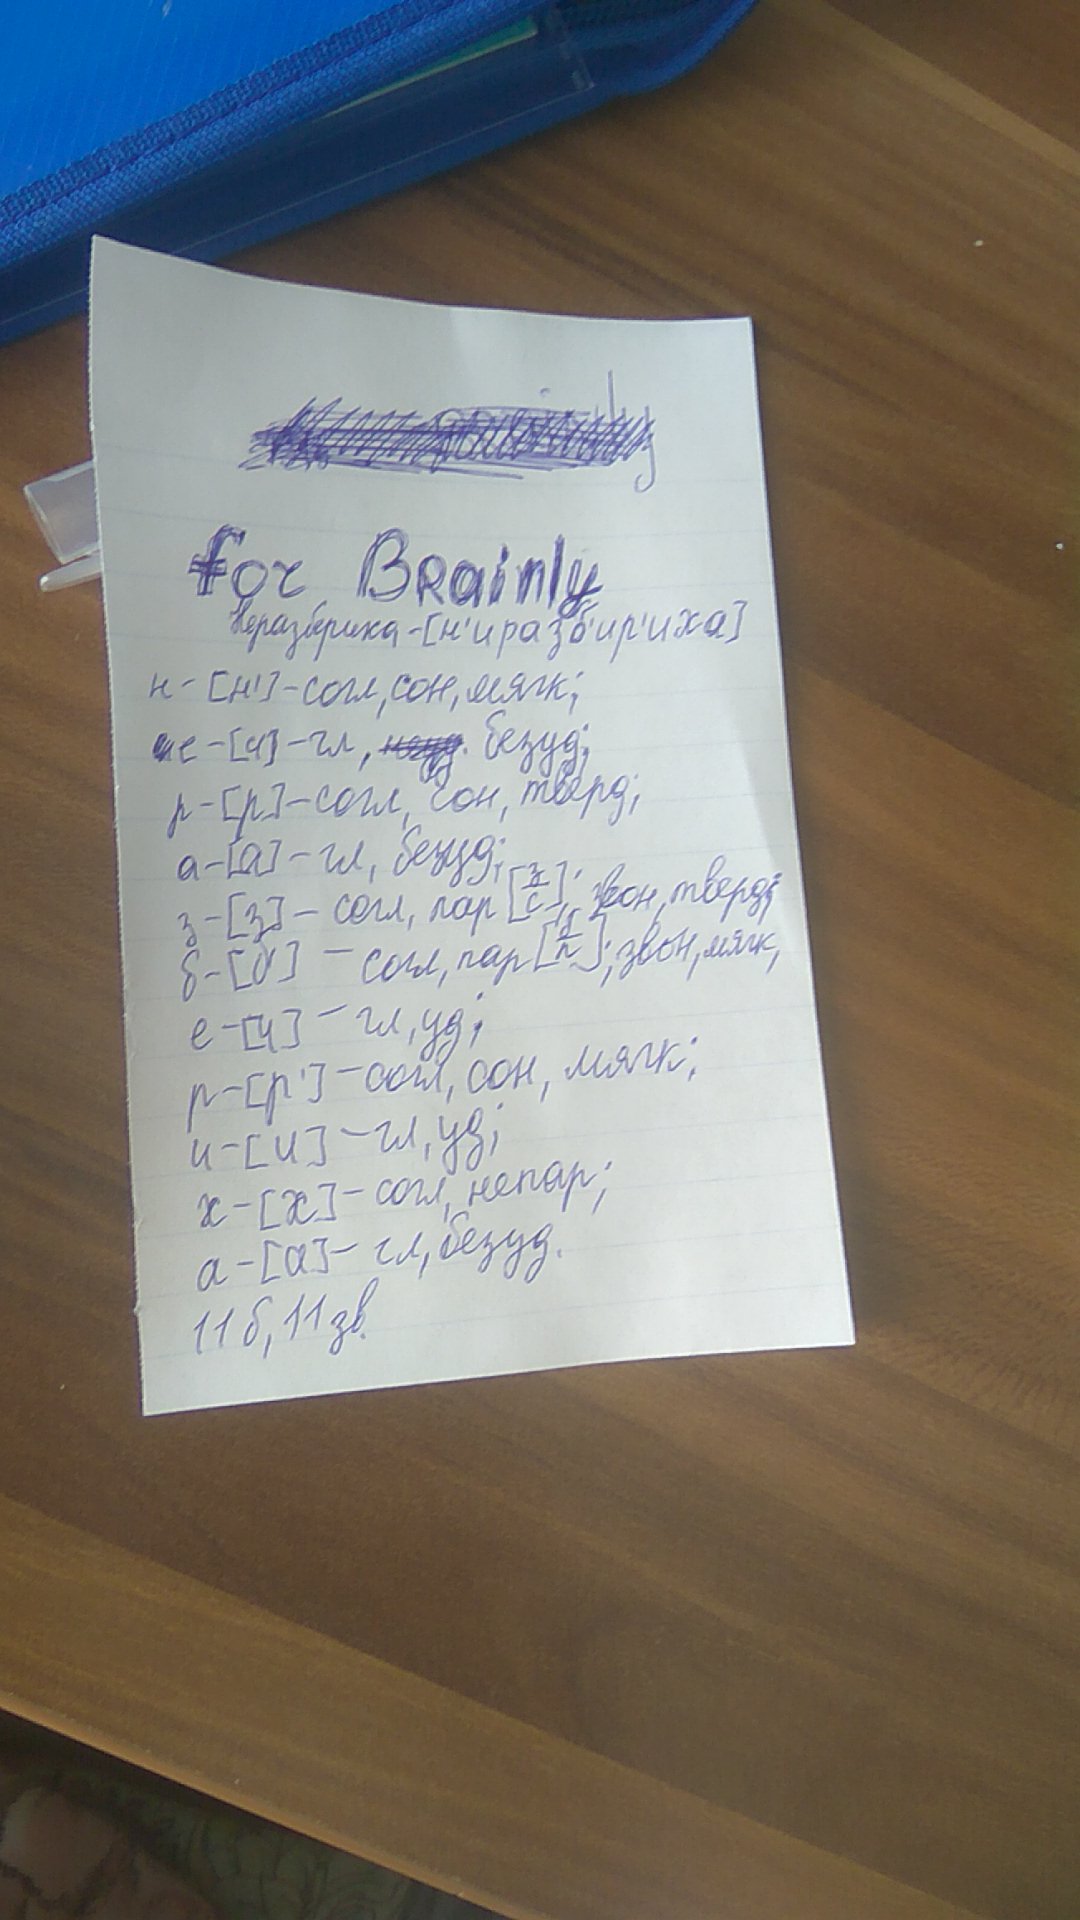 for Brainly
Неразбериха-[н'иразб'ир'иха]
н-[н']-согл,сон,мягк;
е-[и]-гл, безуд;
р-[р]-согл, сон, тверд;
а-[а]-гл, безуд;
з-[з]-согл, пар[з/с]; звон, тверд;
б-[б']-согл, пар[б/п]; звон, мягк,
е-[и]-гл, уд;
р-[р']-согл, сон, мягк;
и-[и]-гл, уд;
х-[х]-согл, непар;
а-[а]-гл, безуд.
11 б, 11 зв.